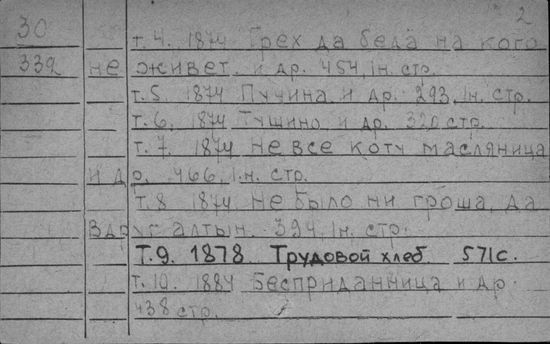 30 2
т. 4. 1874 Грех да беда на кого
339 не живет. и др. 454, 1н. стр.
т. 5. 1874 Пучина и др. 293, 1н. стр.
т. 6. 1874 Тушино и др. 320 стр.
т. 7. 1874 Не все коту масляница
и др. 466, 1.н. стр.
т. 8 1874 Не было ни гроша, да
вдруг алтын. 394, 1н. стр.
Т. 9. 1878 Трудовой хлеб 571с.
т. 10. 1884 Бесприданница и др.
438 стр.